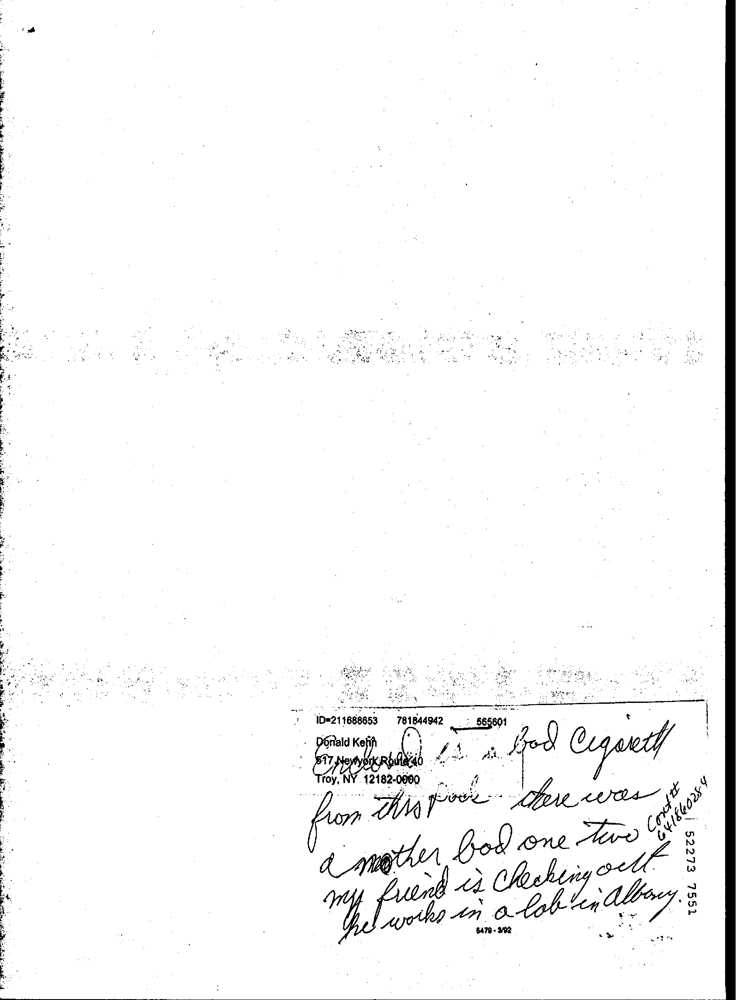 ID=211688653 781844942 565601
Donald Kehn
617 Newyork Route 40
Troy, NY 12182-0000
Enclosed is a bad Cigarett
from this pack there was
a nother bad one two
my friend is Checking outt
he works in a lab in Albany.
Cont#
641860284
52273 7551
6479 - 3/92